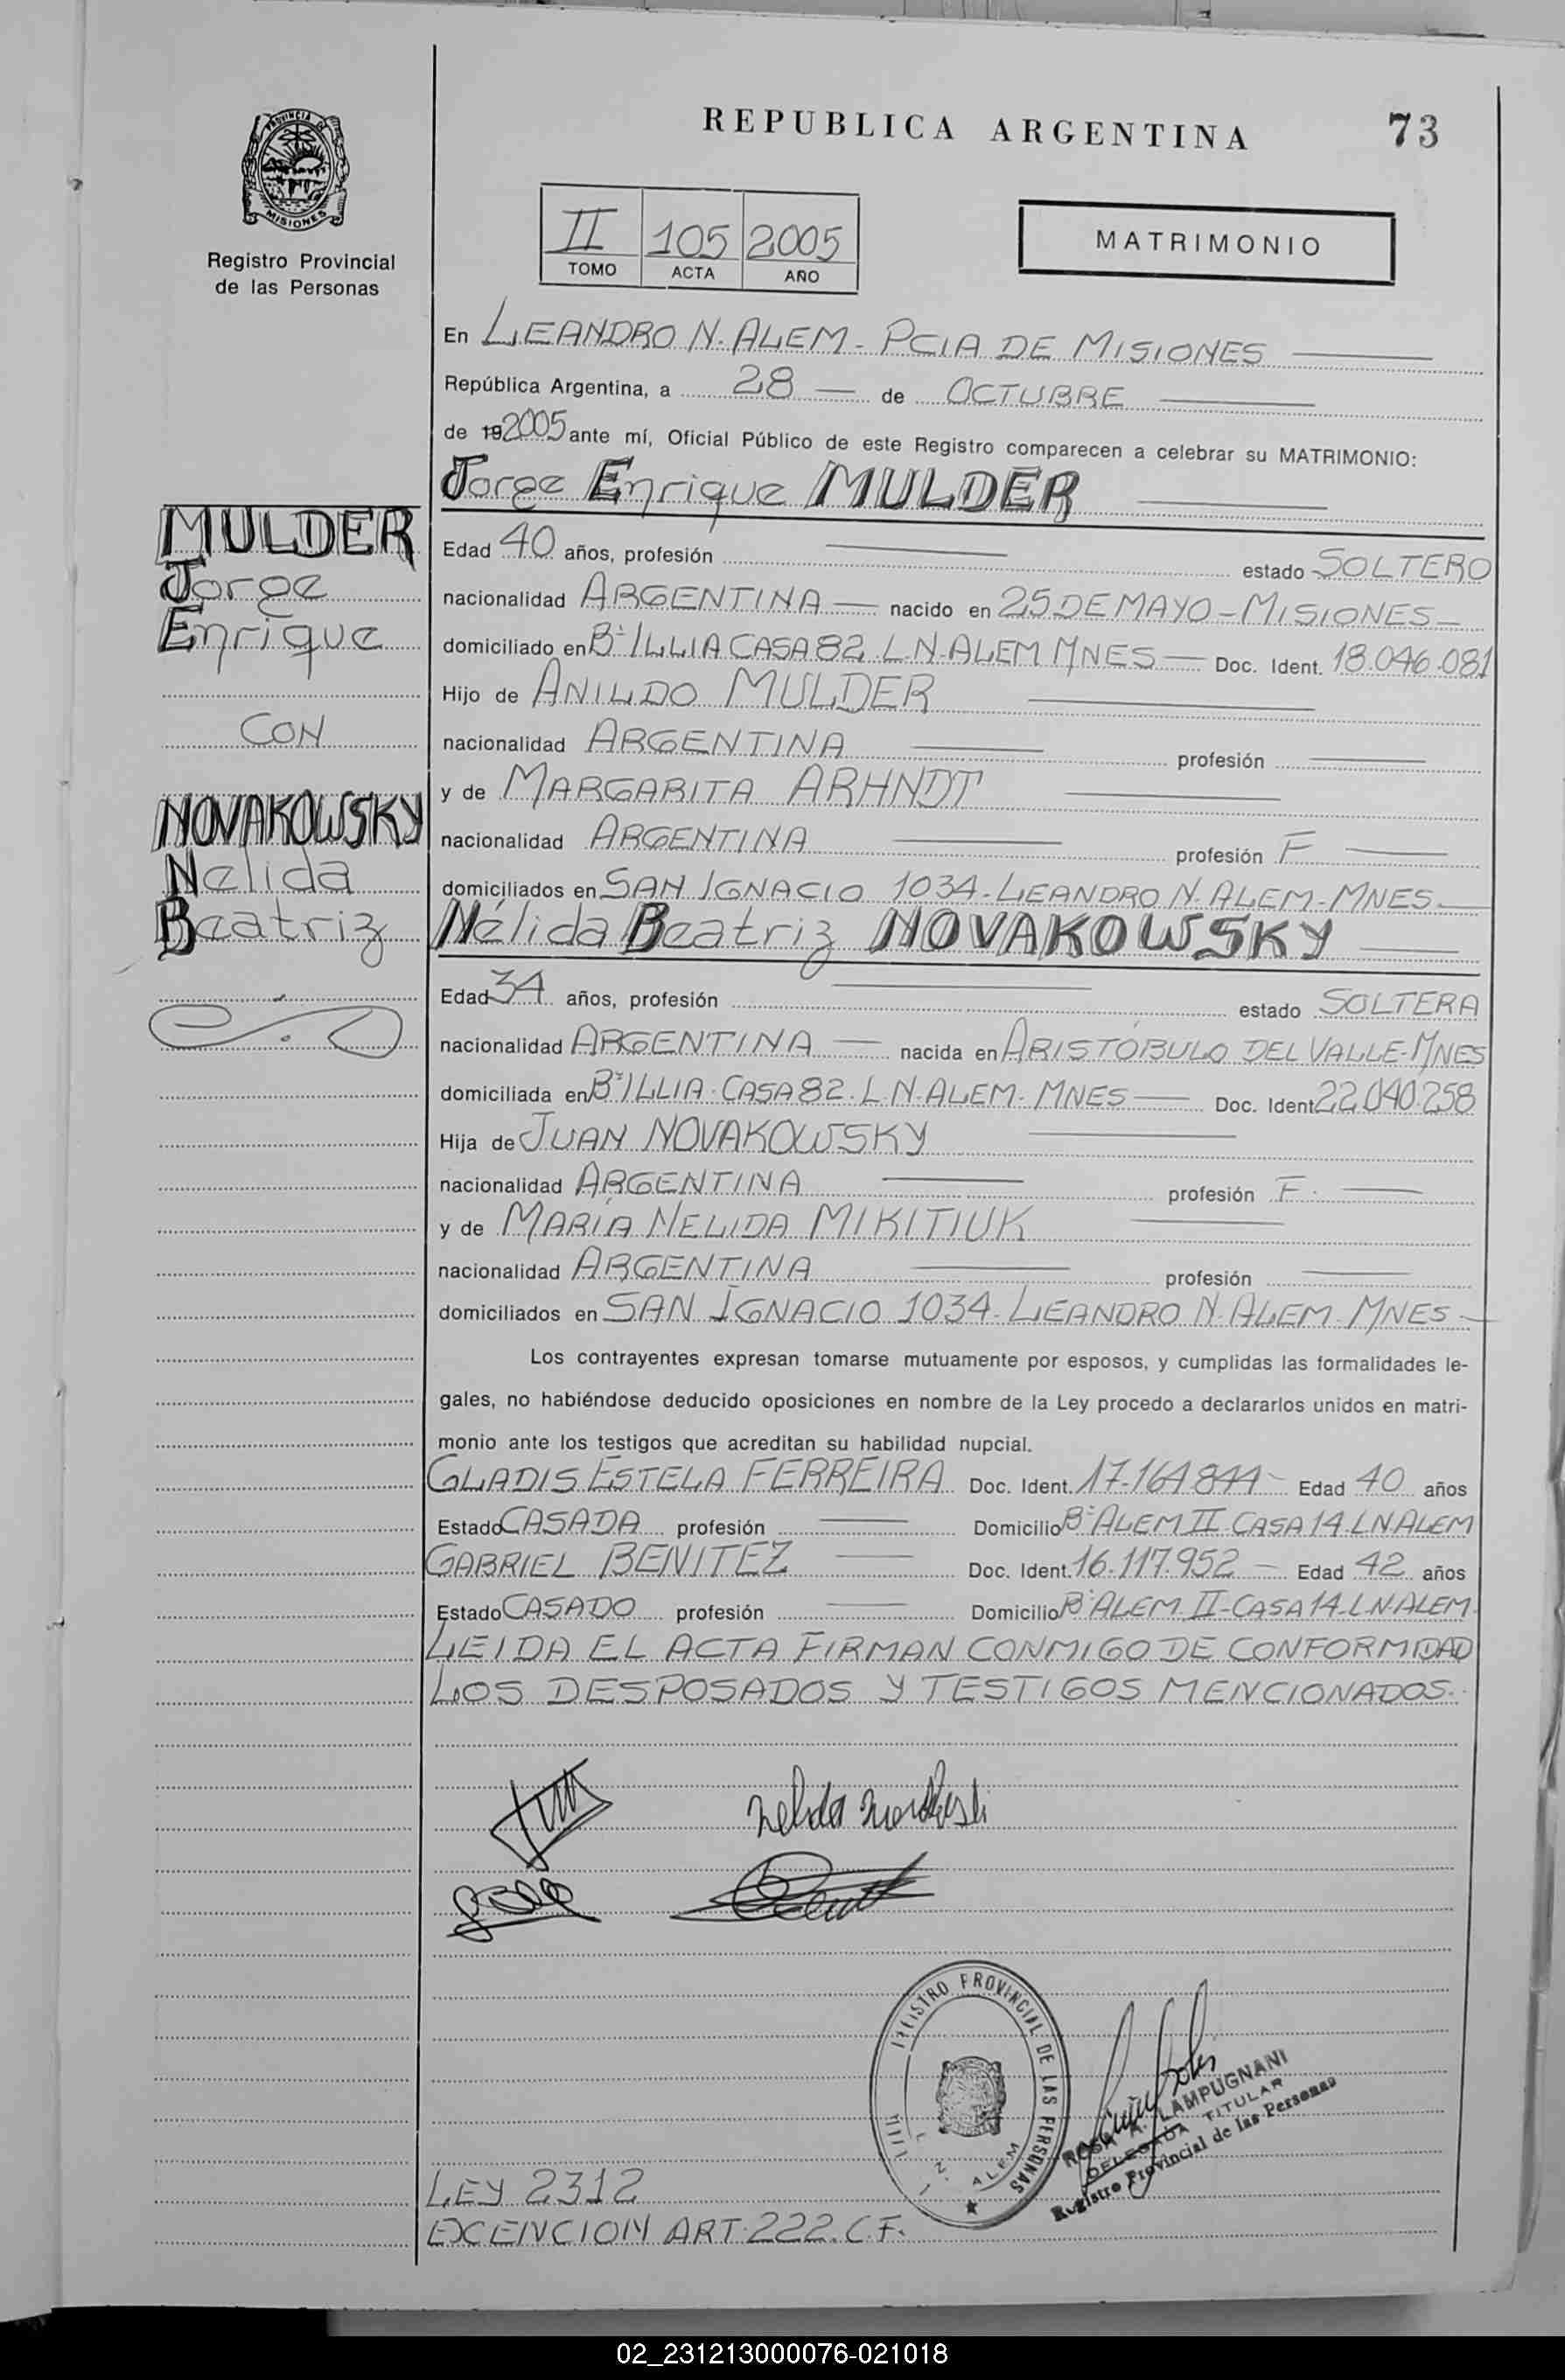 REPUBLICA ARGENTINA
73
PROVINCIA DE
MISIONES
Registro Provincial
de las Personas
II 105 2005
TOMO ACTA AÑO
MATRIMONIO
En LEANDRO N. ALEM - PCIA DE MISIONES
República Argentina, a 28 de OCTUBRE
de 19 2005 ante mí, Oficial Público de este Registro comparecen a celebrar su MATRIMONIO:
Jorge Enrique MULDER
MULDER
Jorge
Enrique
CON
NOVAKOWSKY
Nelida
Beatriz
Edad 40 años, profesión estado SOLTERO
nacionalidad ARGENTINA nacido en 25 DE MAYO - MISIONES
domiciliado en Bº ILLIA CASA 82. L.N. ALEM MNES Doc. Ident. 18.046.081
Hijo de ANILDO MULDER
nacionalidad ARGENTINA profesión
y de MARGARITA ARHNDT
nacionalidad ARGENTINA profesión F
domiciliados en SAN IGNACIO 1034 - LEANDRO N. ALEM - MNES
Nélida Beatriz NOVAKOWSKY
Edad 34 años, profesión estado SOLTERA
nacionalidad ARGENTINA nacida en ARISTÓBULO DEL VALLE - MNES
domiciliada en Bº ILLIA - CASA 82. L.N. ALEM - MNES Doc. Ident 22.040.258
Hija de JUAN NOVAKOWSKY
nacionalidad ARGENTINA profesión F.
y de MARÍA NELIDA MIKITIUK
nacionalidad ARGENTINA profesión
domiciliados en SAN IGNACIO 1034 - LEANDRO N. ALEM - MNES -
Los contrayentes expresan tomarse mutuamente por esposos, y cumplidas las formalidades le-
gales, no habiéndose deducido oposiciones en nombre de la Ley procedo a declararlos unidos en matri-
monio ante los testigos que acreditan su habilidad nupcial.
GLADIS ESTELA FERREIRA Doc. Ident. 17.164.844 - Edad 40 años
Estado CASADA profesión Domicilio Bº ALEM II CASA 14. L N ALEM
GABRIEL BENITEZ Doc. Ident. 16.117.952 - Edad 42 años
Estado CASADO profesión Domicilio Bº ALEM II - CASA 14 - L N ALEM
LEIDA EL ACTA FIRMAN CONMIGO DE CONFORMIDAD
LOS DESPOSADOS Y TESTIGOS MENCIONADOS.
REGISTRO PROVINCIAL DE LAS PERSONAS
L. N. ALEM
ROSA A. LAMPUGNANI
DELEGADA TITULAR
Registro Provincial de las Personas
LEY 2312
EXCENCION ART. 222. C.F.
02_231213000076-021018